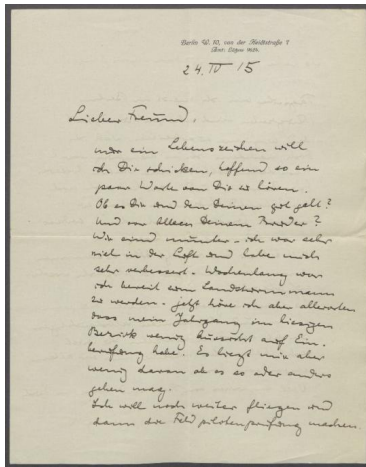 Berlin W. 10, von der Heydtstraße 7
24. IV 15
Lieber Freund,
nur ein Lebenszeichen will
ich Dir schicken, hoffend so ein
paar Worte von Dir zu hören.
Ob es Dir und den Deinen gut geht?
Und vor Allem Deinem Bruder?
Wir sind munter – ich war sehr
viel in der Luft und habe mich
sehr verbessert. Wochenlang war
ich bereit zum Landsturmmann
zu werden. Jetzt höre ich aber allerorten
dass mein Jahrgang im hiesigen
Bezirk wenig Aussicht auf Ein-
berufung habe. Es liegt mir aber
wenig daran ob es so oder anders
gehen mag.
Ich will noch weiter fliegen und
dann die Feldpilotenprüfung machen.